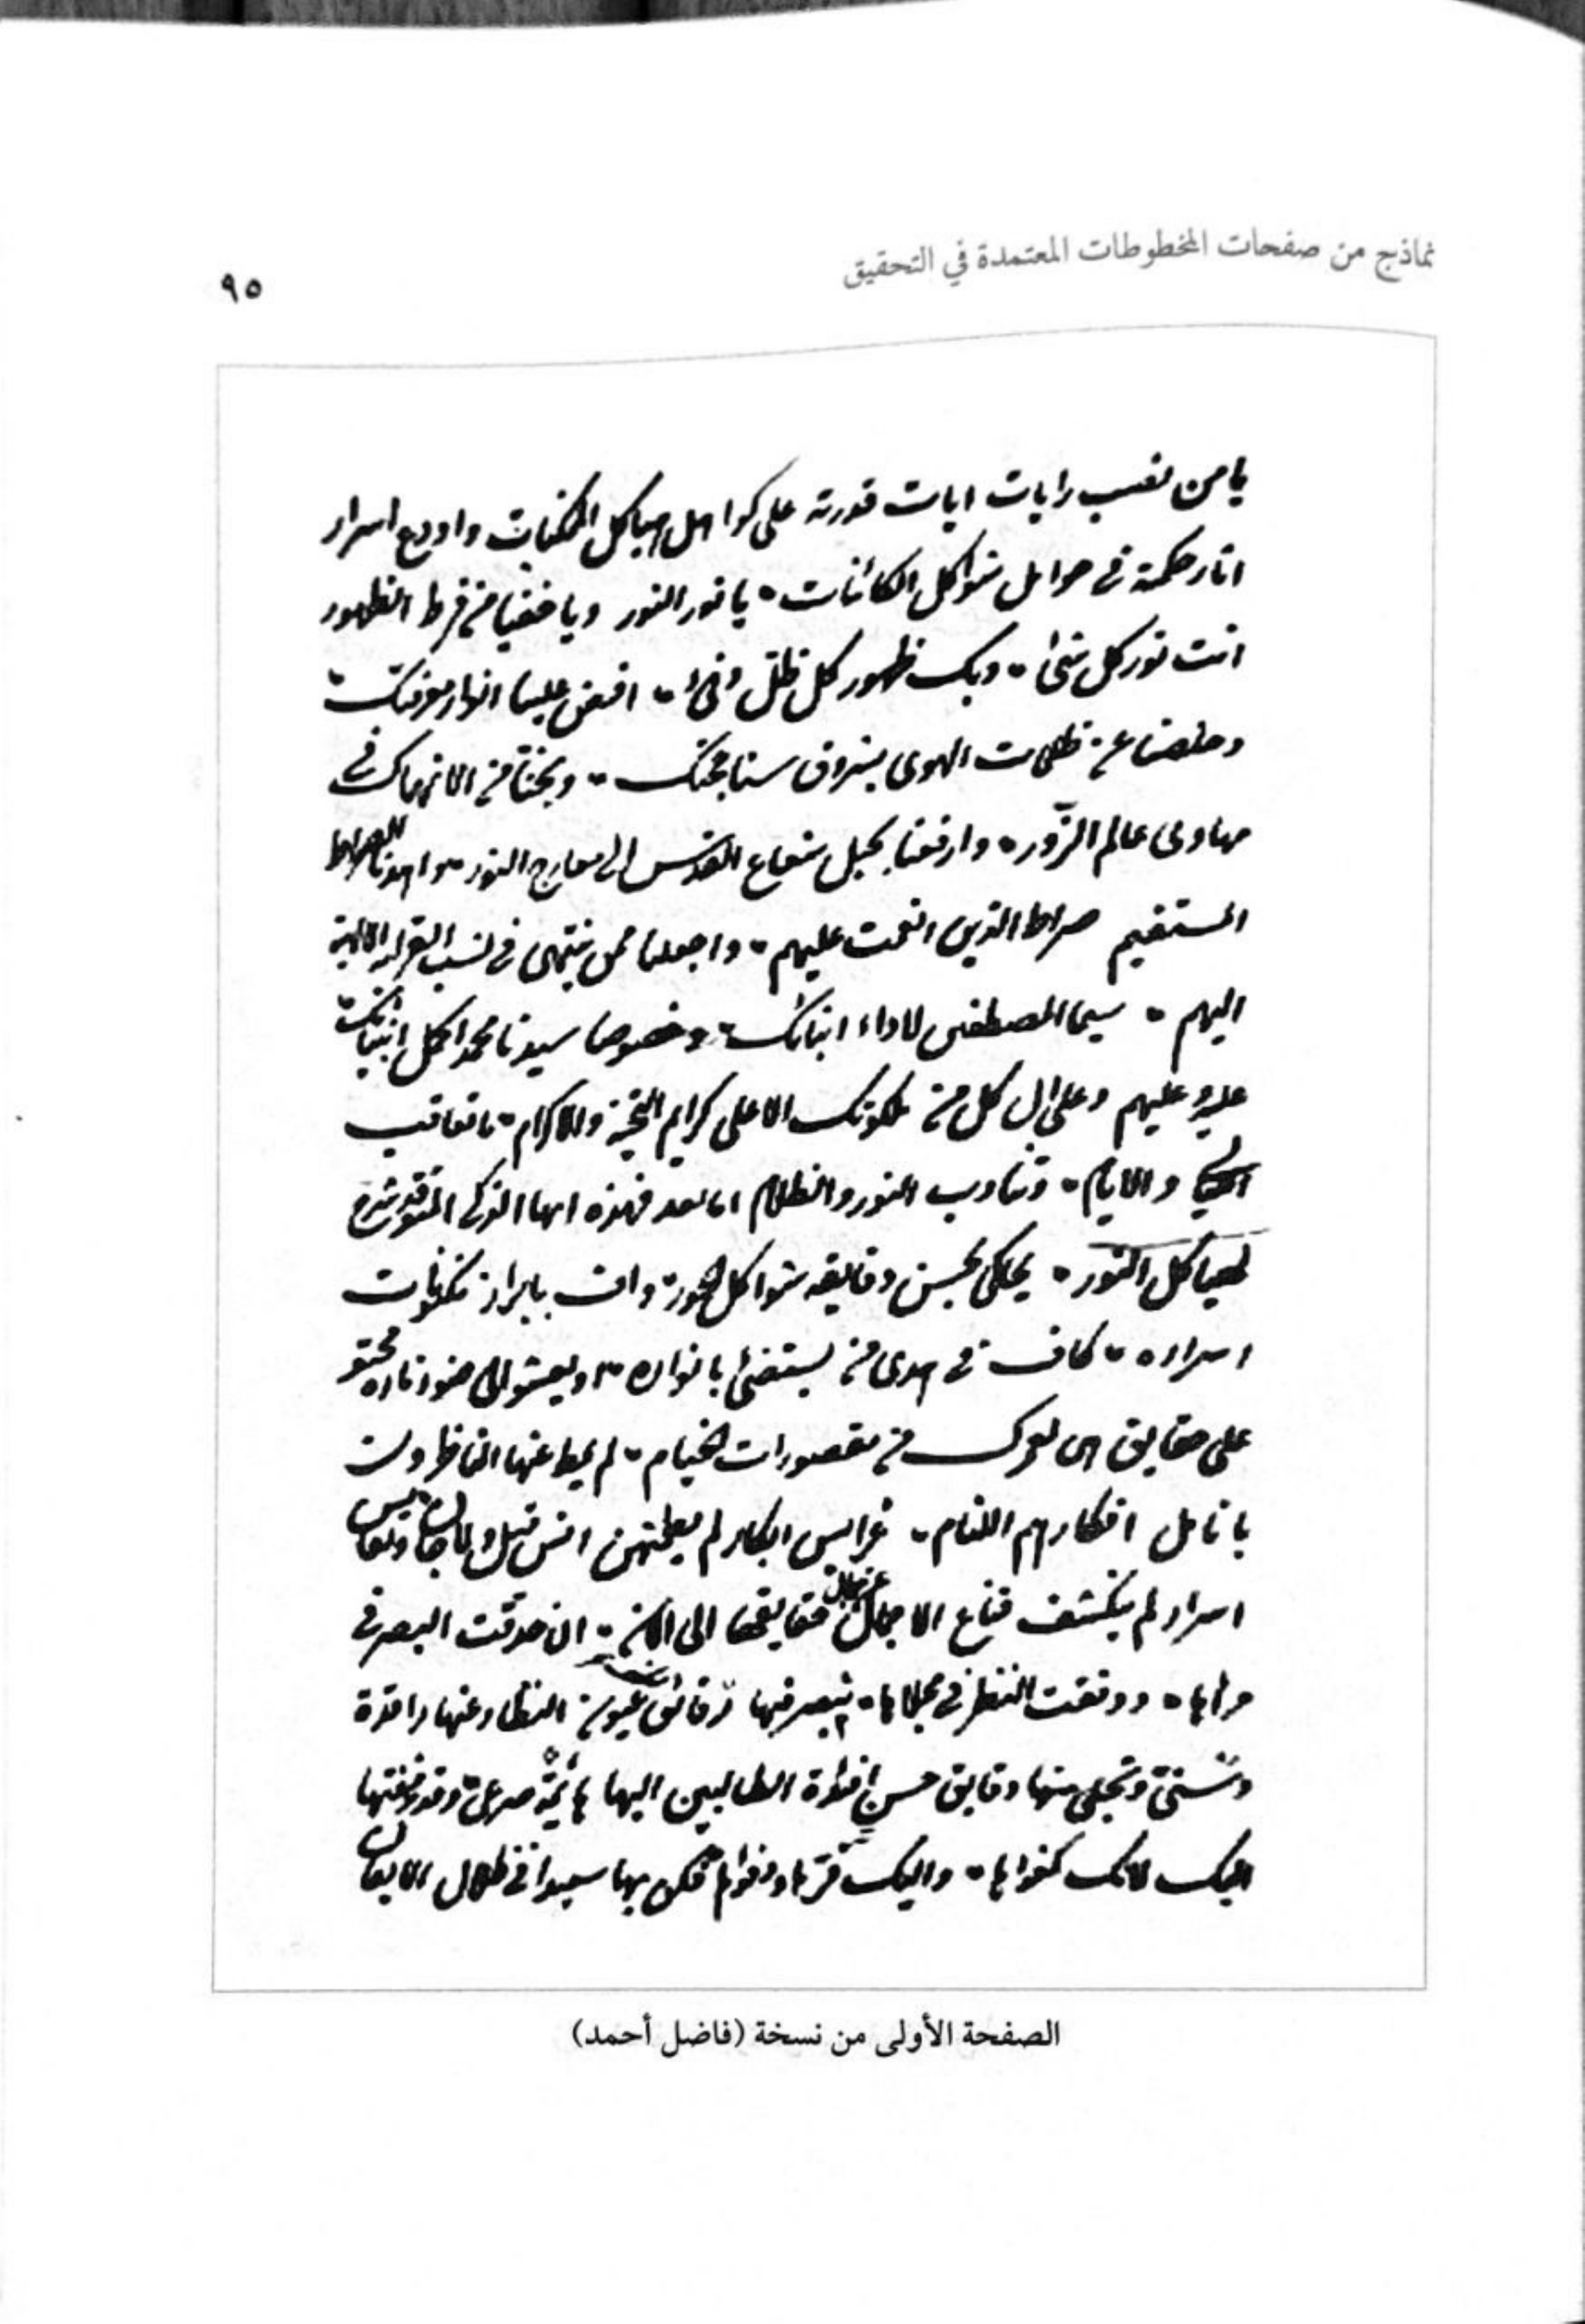 نماذج من صفحات المخطوطات المعتمدة في التحقيق
٩٥
يا من نصب رايات ايات قدرته على كواهل هياكل الممكنات واودع اسرار
اثار حكمته في حوامل شواكل الكائنات يا نور النور ويا خفيا من فرط الظهور
انت نور كل شئ وبك ظهور كل ظل وفئ افض علينا انوار معرفتك
وخلصنا عن ظلمات الهوى بشروق سنا محبتك ونجنا من الانهماك في
مهاوى عالم الزور وارفعنا بحبل شعاع القدس الى معارج النور واهدنا الصراط
المستقيم صراط الذين انعمت عليهم واجعلنا ممن ينتمى في نسب القرابة الالهية
اليهم سيما المصطفين لاداء انبائك وخصوصا سيدنا محمد اكمل انبيائك
عليه وعليهم وعلى ال كل من ملكوتك الاعلى كرايم التحية والاكرام ما تعاقب
الليالى والايام وتناوب النور والظلام اما بعد فهذه ايها الذكى المتوقد شرح
لهياكل النور يحكى بحسن دقايقه شواكل الحور وان بابراز مكنونات
اسراره كاف في هدى من يستضئ بانواره ويعشو الى ضوء ناره محتو
على حقايق هى لعمرك من مقصورات الخيام لم يمط عنها الناظرون
بانامل افكارهم اللثام عرايس ابكار لم يطمثهن انس قبل ولا جان ونفايس
اسرار لم ينكشف قناع الاجمال عن جمال حقايقها الى الان ان حدقت البصر في
مراياها ودققت النظر في مجلاها تبصر فيها دقائق عيون النظار عنها راقدة
وتجلى منها دقايق حسن افئدة الطالبين اليها هائمة صرعى وقد زففتها
اليك لانك كفواها واليك فكن بها سعيدا في ظلال
الصفحة الأولى من نسخة (فاضل أحمد)